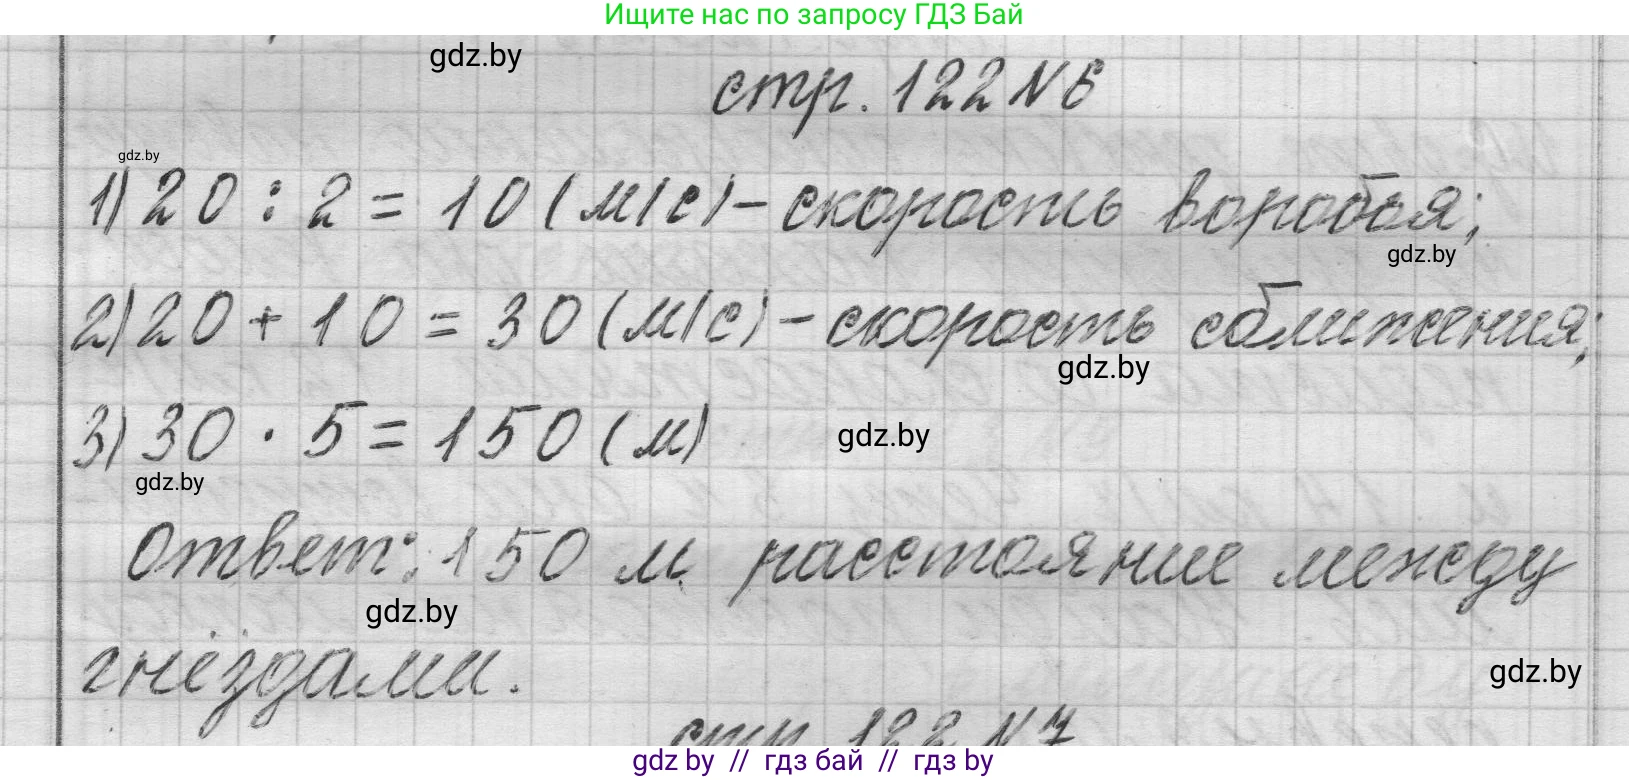 Ищите нас по запросу ГДЗ Бай
gdz.by
стр. 122 N 6
gdz.by
1) 20 : 2 = 10 (м/с) - скорость воробья;
gdz.by
2) 20 + 10 = 30 (м/с) - скорость сближения;
gdz.by
3) 30 · 5 = 150 (м)
gdz.by
gdz.by
Ответ: 150 м расстояние между
gdz.by
гнёздами.
gdz.by
стр. 122 N 7
gdz.by // гдз бай // гдз by